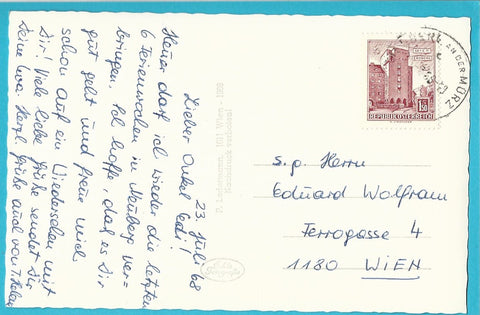 23. Juli 68
Lieber Onkel Edi!
Heuer darf ich wieder die letzten
6 Ferienwochen in Neuberg ver-
bringen. Ich hoffe, daß es Dir
gut geht und freue mich
schon auf ein Wiedersehen mit
Dir! Viele liebe Grüße sendet Dir
Deine Herzl. Grüße auch von T. Helen
P. Ledermann, 1011 Wien, - 1969
Nachdruck verboten!
AN DER MÜRZ
1.50
REPUBLIK ÖSTERREICH
s.p. Herrn
Eduard Wolfram
Ferrogasse 4
1180 WIEN